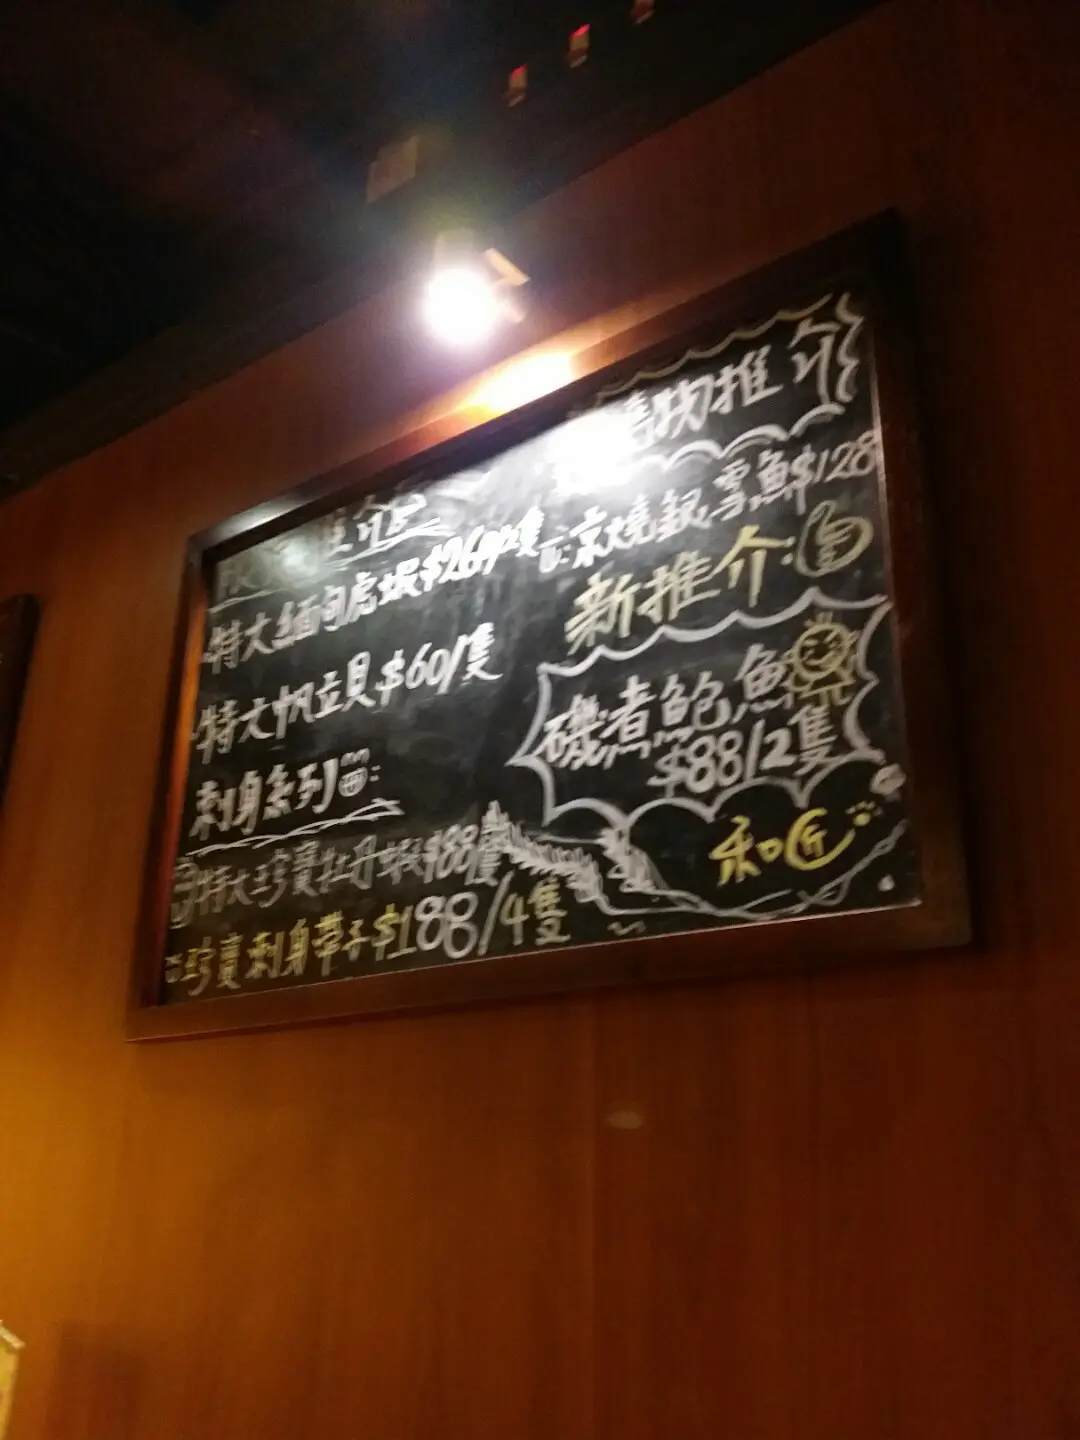 推介
特大緬甸虎蝦$264/2隻
特大帆立貝$60/隻
刺身系列
特大珍寶牡丹蝦$88/隻
珍寶刺身帶子$188/4隻
燒物推介
京燒銀雪魚$128
新推介:
磯煮鮑魚
$88/2隻
和匠